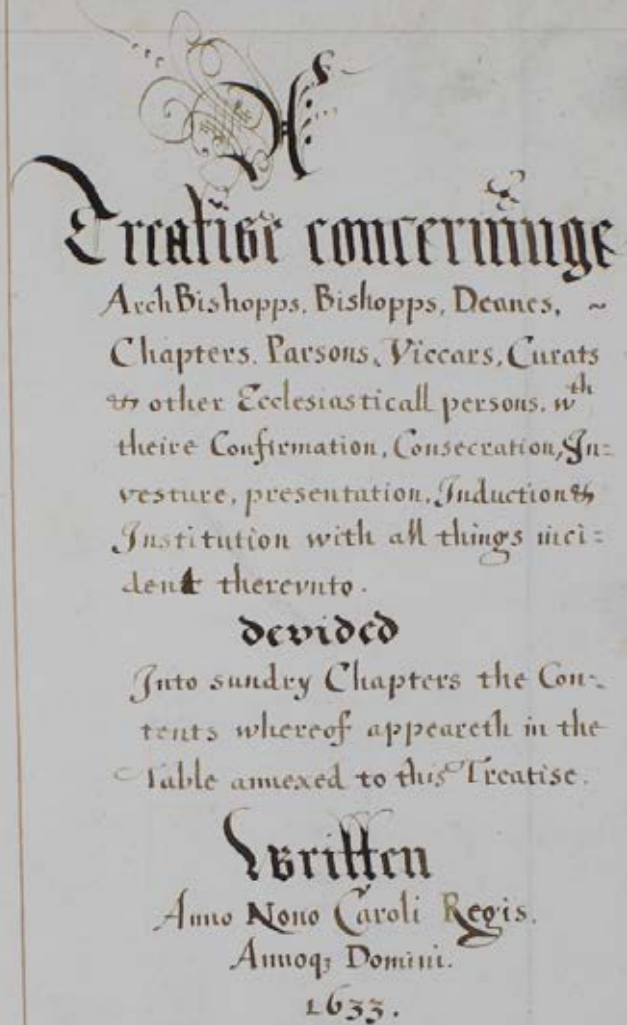 A
Treatise concerninge
ArchBishopps, Bishopps, Deanes, ~
Chapters. Parsons, Viccars, Curats
& other Ecclesiasticall persons. wth
theire Confirmation, Consecration, In=
vesture, presentation, Induction &
Institution with all things inci=
dent therevnto.
devided
Into sundry Chapters the Con=
tents whereof appeareth in the
Table annexed to this Treatise.
Written
Anno Nono Caroli Regis.
Annoq; Domini.
1633.